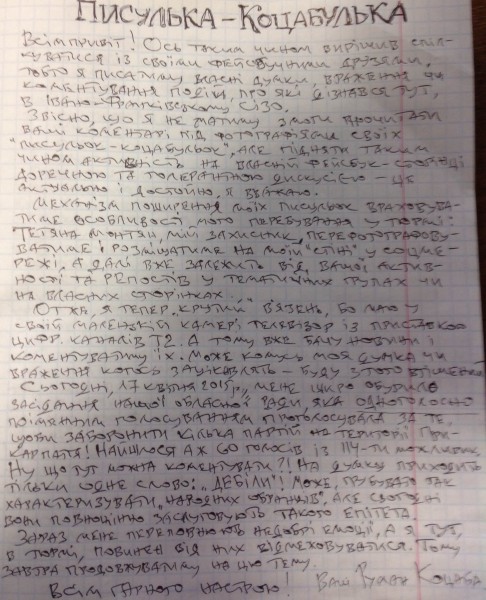 ПИСУЛЬКА – КОЦАБУЛЬКА
Всім привіт! Ось таким чином вирішив спіл-
куватися із своїми фейсбучними друзями,
тобто я писатиму власні думки, враження чи
коментування подій, про які дізнався тут,
в Івано-Франківському СІЗО.
Звісно, що я не матиму змоги прочитати
ваші коментарі під фотографіями своїх
"писульок-коцабульок", але підняти таким
чином активність на власній фейсбук-сторінці
доречною та толерантною дискусією – це
актуально і достойно, я вважаю.
Механізм поширення моїх писульок враховува-
тиме особливості мого перебування у тюрмі:
Тетяна Монтян, мій захисник, перефотографову-
ватиме і розміщатиме на моїй "стіні" у соцме-
режі, а далі вже залежить від вашої актив-
ності та репостів у тематичних групах чи
на власних сторінках...
Отже, я тепер "крутий" в'язень, бо маю у
своїй маленькій камері телевізор із приставкою
цифр. каналів Т2. А тому вже бачу новини і
коментуватиму їх. Може комусь моя думка чи
враження когось зацікавлять – буду з того втішений.
Сьогодні, 17 квітня 2015 р., мене щиро обурило
засідання нашої обласної ради, яка одноголосно
поіменним голосуванням проголосувала за те,
щоби заборонити кілька партій на території При-
карпаття! Найшлося аж 60 голосів із 114-ти можливих.
Ну що тут можна коментувати?! На думку приходить
тільки одне слово: "ДЕБІЛИ"! Може, грубувато так
характеризувати "народних обранців", але сьогодні
вони повноцінно заслуговують такого епітета.
Зараз мене переповнюють недобрі емоції, а я тут,
в тюрмі, повинен від них відмежовуватися. Тому
завтра продовжуватиму на цю тему.
Всім гарного настрою! Ваш Руслан Коцаба